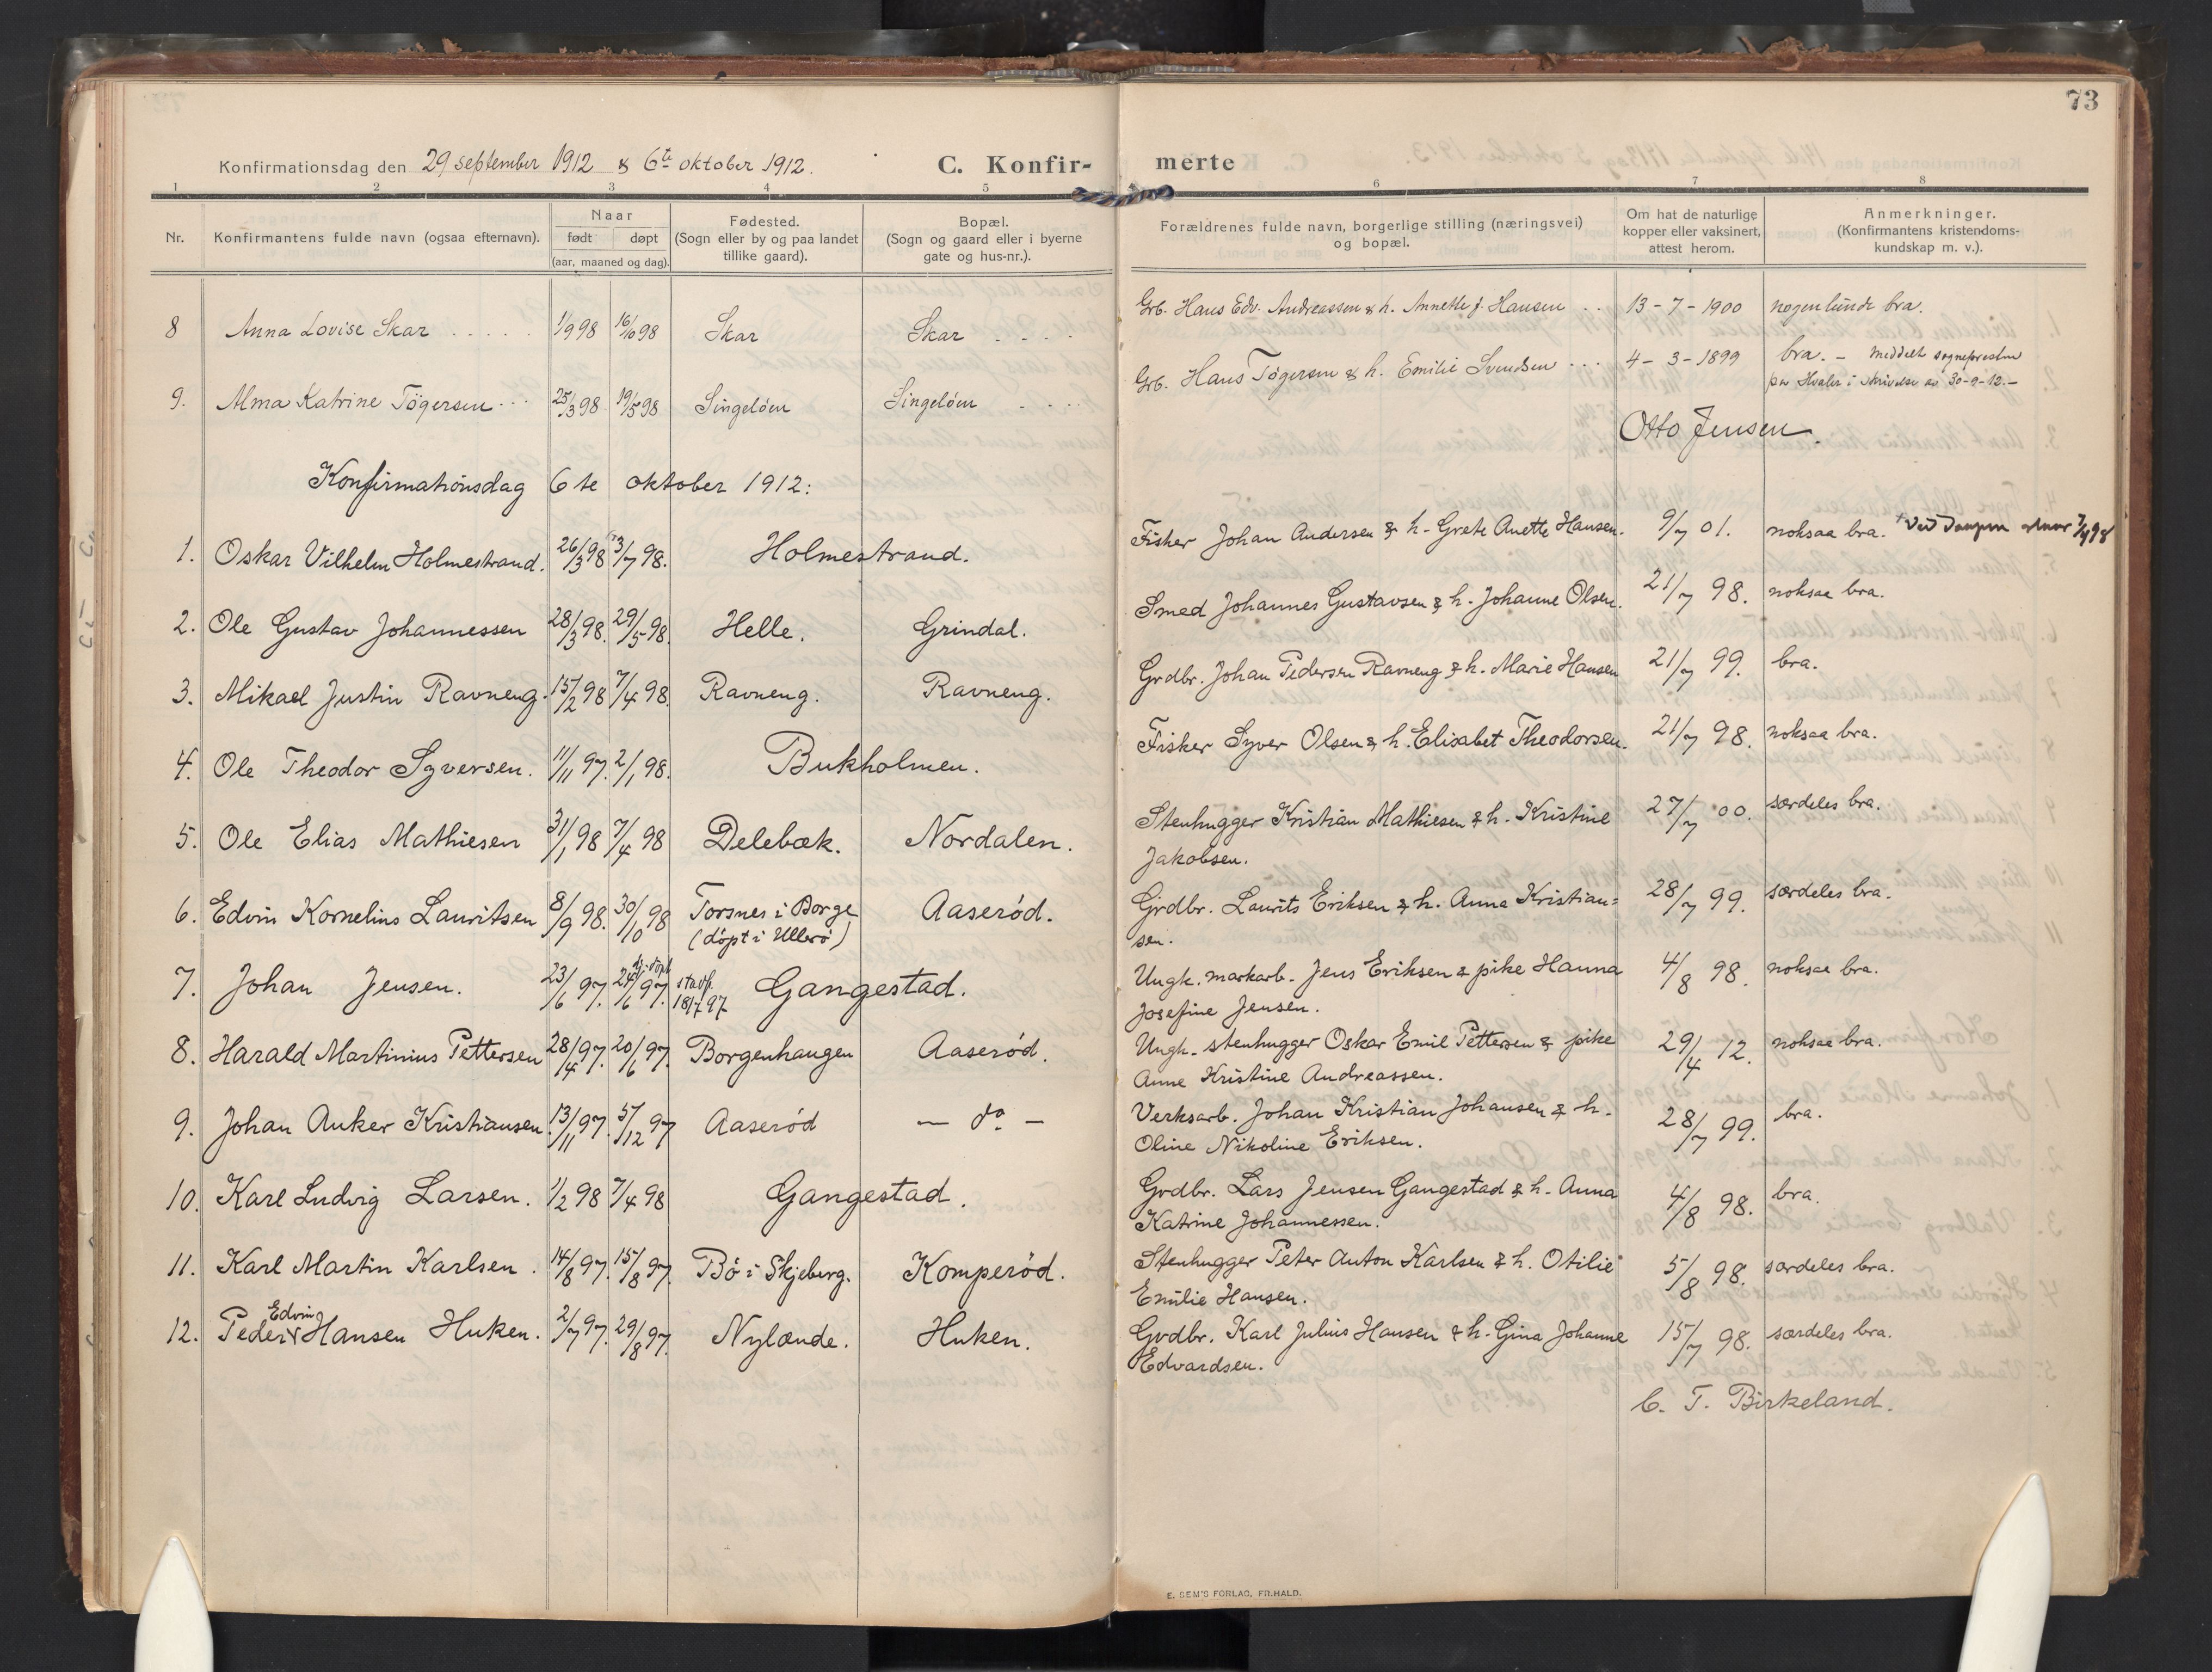 73
Konfirmationsdag den 29 september 1912 & 6te oktober 1912. C. Konfir- merte
1 2 3 4 5 6 7 8
Nr. Konfirmantens fulde navn (ogsaa efternavn). Naar født døpt (aar, maaned og dag). Fødested. (Sogn eller by og paa landet tillike gaard). Bopæl. (Sogn og gaard eller i byerne gate og hus-nr.). Forældrenes fulde navn, borgerlige stilling (næringsvei) og bopæl. Om hat de naturlige kopper eller vaksinert, attest herom. Anmerkninger. (Konfirmantens kristendoms- kundskap m. v.).
8 Anna Lovise Skar 1/9 98 16/10 98 Skar Skar Grb. Hans Edv. Andreassen & h. Annette J. Hansen 13-7-1900 nogenlunde bra.
9. Alma Katrine Tögersen 25/3 98 19/5 98 Singelöen Singelöen Grb. Hans Tögersen & h. Emilie Svendsen 4-3-1899 bra. - meddelt sognepresten
paa Hvaler i skrivelse av 30-9-12.-
Otto Jensen.
Konfirmationsdag 6te oktober 1912:
1. Oskar Vilhelm Holmestrand. 26/3 98 3/7 98. Holmestrand. Fisker Johan Andersen & h. Grete Anette Hansen. 9/7 01. noksaa bra.
2. Ole Gustav Johannessen 28/3 98. 29/5 98. Helle. Grindal. Smed Johannes Gustavsen & h. Johanne Olsen. 21/7 98. noksaa bra.
3. Mikael Justin Ravneng. 15/2 98 7/4 98. Ravneng. Ravneng. Grdbr. Johan Pedersen Ravneng & h. Marie Hansen 21/7 99. bra.
4. Ole Theodor Syversen. 11/11 97. 2/1 98. Bukholmen. Fisker Syver Olsen & h. Elisabet Theodorsen. 21/7 98. noksaa bra.
5. Ole Elias Mathiesen 31/1 98 7/4 98 Delebæk. Nordalen. Stenhugger Kristian Mathiesen & h. Kristine 27/7 00. særdeles bra.
Jakobsen.
6. Edvin Kornelius Lauritsen 8/9 98. 30/10 98 Torsnes i Borge Aaserød. Grdbr. Laurits Eriksen & h. Anna Kristian= 28/7 99. særdeles bra.
(døpt i Ullerø) sen.
7. Johan Jensen. 23/6 97. hj. døpt 24/6 97. stadf. 18/7 97 Gangestad. Ungk. markarb. Jens Eriksen & pike Hanna 4/8 98. noksaa bra.
Josefine Jensen.
8. Harald Martinius Pettersen 28/4 97. 20/6 97. Borgenhaugen Aaserød. Ungk. stenhugger Oskar Emil Pettersen & pike 29/4 12. noksaa bra.
Anne Kristine Andreassen.
9. Johan Anker Kristiansen 13/11 97. 5/12 97 Aaserød — do — Verksarb. Johan Kristian Johansen & h. 28/7 99. bra.
Oline Nikoline Eriksen.
10. Karl Ludvig Larsen. 1/2 98 7/4 98 Gangestad. Grdbr. Lars Jensen Gangestad & h. Anna 4/8 98. bra.
Katrine Johannessen.
11. Karl Martin Karlsen. 14/8 97. 15/8 97. Bø i Skjeberg. Komperød. Stenhugger Peter Anton Karlsen & h. Otilie 5/8 98. særdeles bra.
Emilie Hansen.
12. Peder Edvin Hansen Huken. 2/7 97. 29/8 97. Nylænde. Huken. Grdbr. Karl Julius Hansen & h. Gina Johanne 15/7 98. særdeles bra.
Edvardsen.
C. T. Birkeland.
E. SEM'S FORLAG, FR.HALD.